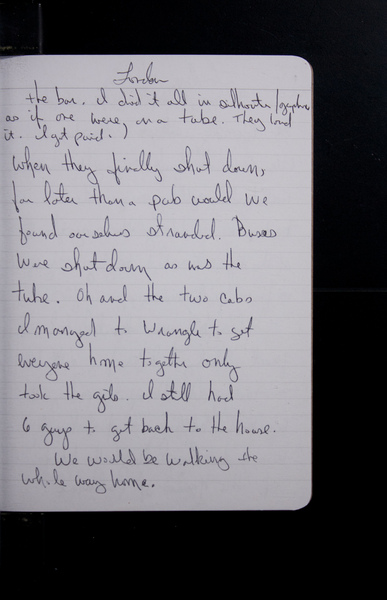 London
the bar. I did it all in silhouette/
as if one were on a tube. They loved
it. I got paid.)
When they finally shut down,
far later than a pub would we
found ourselves stranded. Buses
were shut down as was the
tube. Oh and the two cabs
I managed to wrangle to get
everyone home together only
took the girls. I still had
6 guys to get back to the house.
We would be walking the
whole way home.